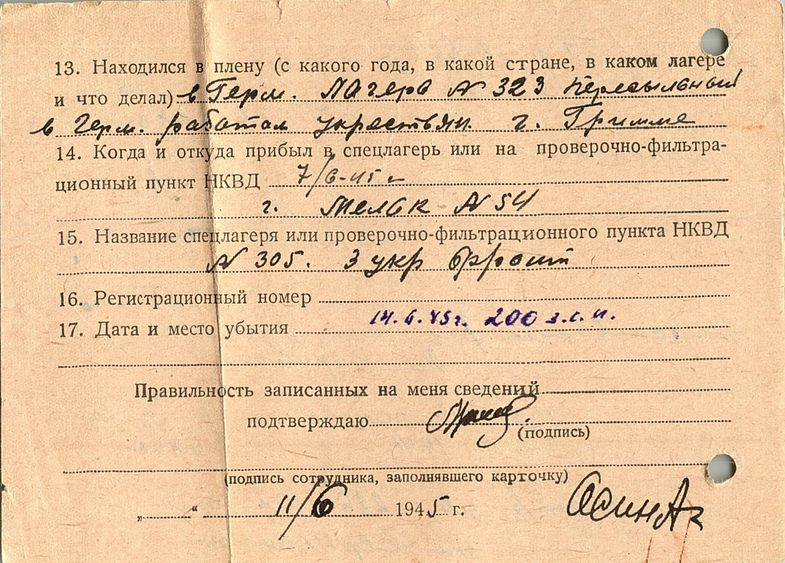 13. Находился в плену (с какого года, в какой стране, в каком лагере
и что делал) в Герм. Лагерь N 323 пересыльный
в Герм. работал укрестьян г. Гримме
14. Когда и откуда прибыл в спецлагерь или на проверочно-фильтра-
ционный пункт НКВД 7/6-45 г
г. Мельк N 54
15. Название спецлагеря или проверочно-фильтрационного пункта НКВД
N 305. 3 укр фронт
16. Регистрационный номер
17. Дата и место убытия 14.6.45г. 200 з.с.п.
Правильность записанных на меня сведений
подтверждаю
(подпись)
(подпись сотрудника, заполнявшего карточку)
„ “ 11/6 1945 г.